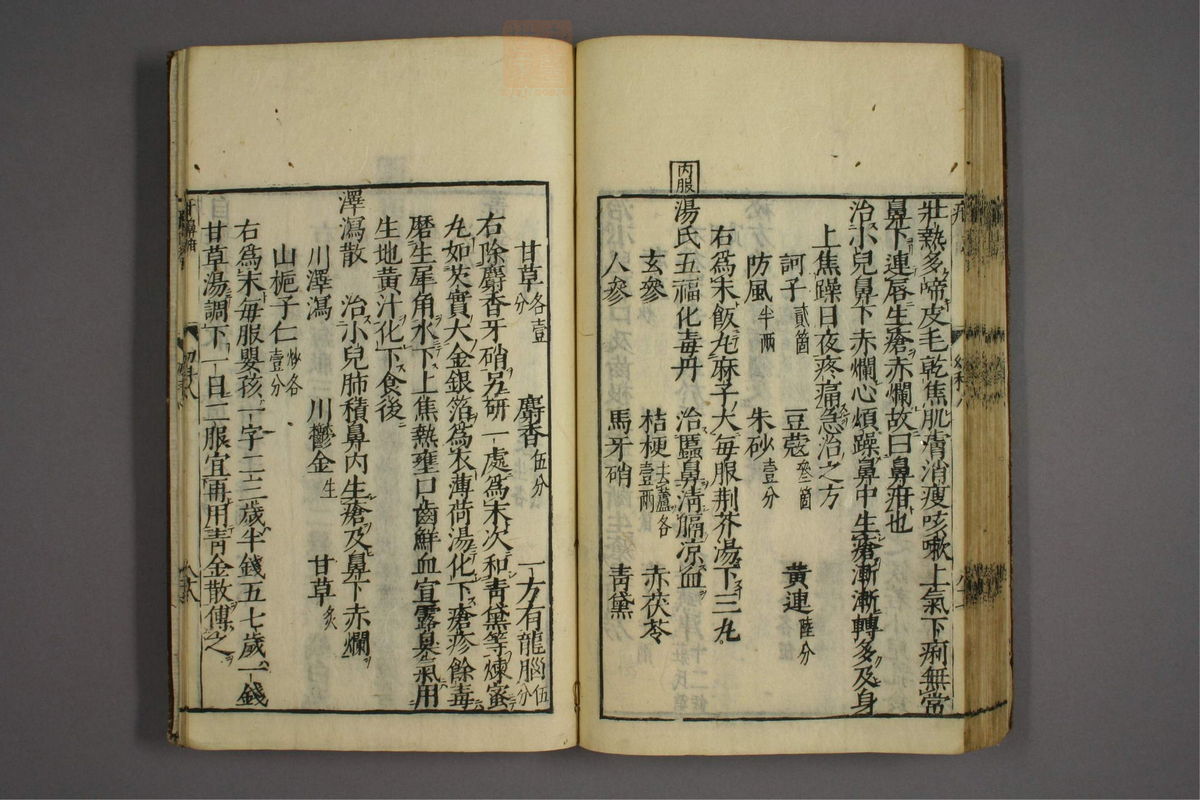 壯熱多啼皮毛乾焦肌膚消瘦咳嗽上氣下痢無常
鼻下連唇生瘡赤爛故曰鼻疳也
治小兒鼻下赤爛心煩躁鼻中生瘡漸漸轉多及身
上焦躁日夜疼痛急治之方
訶子貳箇 豆蔻參箇 黃連陸分
防風半兩 朱砂壹分
右爲末飯丸麻子大每服荆芥湯下三丸
內服
湯氏五福化毒丹 治䘌鼻清膈凉血
玄參 桔梗去蘆各壹兩 赤茯苓
人參 馬牙硝 靑黛
甘草各壹分 麝香伍分 一方有龍腦伍分
右除麝香牙硝另研一處爲末次和靑黛等煉蜜
丸如芡實大金銀箔爲衣薄荷湯化下瘡疹餘毒
磨生犀角水下上焦熱壅口齒鮮血宣露臭氣用
生地黃汁化下食後
澤瀉散 治小兒肺積鼻內生瘡及鼻下赤爛
川澤瀉 川鬱金生 甘草炙
山梔子仁炒各壹分
右爲末每服嬰孩一字二三歲半錢五七歲一錢
甘草湯調下一日二服宜再用靑金散傅之